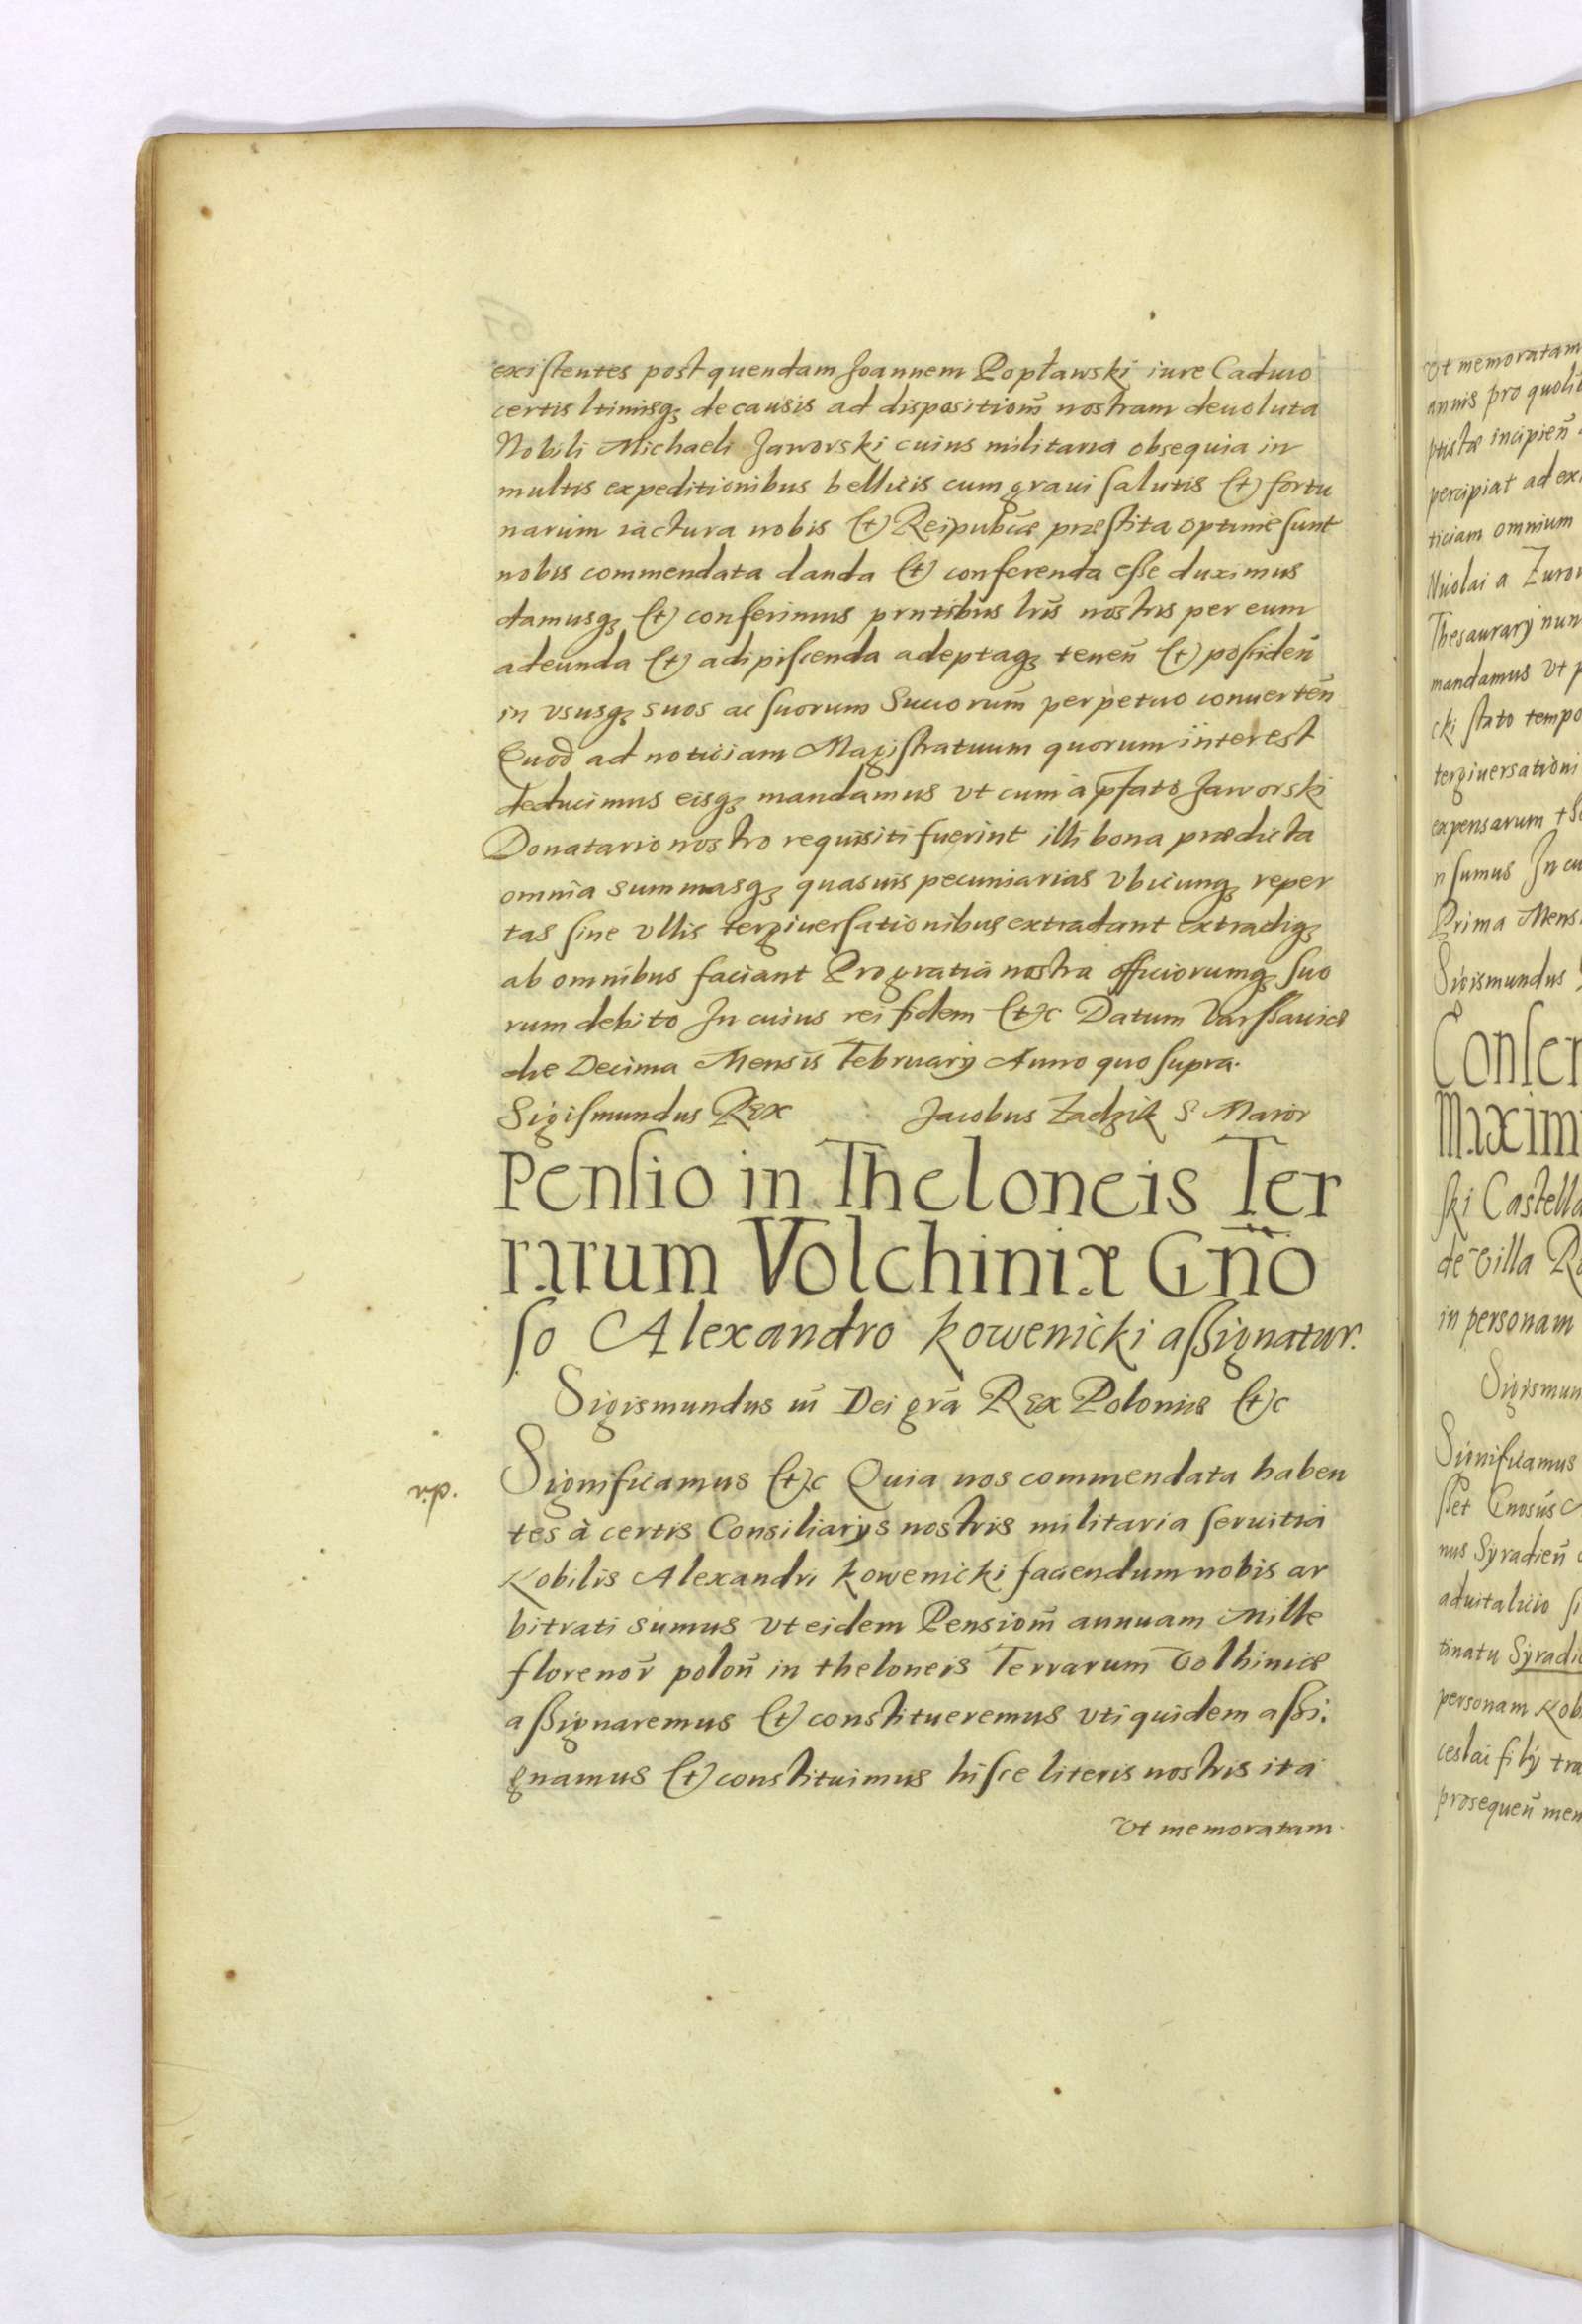 existentes post quendam Joannem Popławski iure Caduco
certis ltimisq; de causis ad dispositiom̃ nostram deuoluta
Nobili Michaeli Jaworski cuius militaria obsequia in
multis expeditionibus bellicis cum graui salutis (et) fortu
narum iactura nobis (et) Reipub̃cæ præstita optime sunt
nobis commendata danda (et) conferenda esse duximus
damusq; (et) conferimus prñtibus lris̃ nostris per eum
adeunda (et) adipiscenda adeptaq; teneñ (et) possideñ
in vsusq; suos ac suorum Succorum̃ perpetuo conuerteñ
Quod ad noticiam Magistratuum quorum interest
deducimus eisq; mandamus vt cum à p̃fato Jaworski
Donatario nostro requisiti fuerint illi bona prædicta
omnia summasq; quasuis pecuniarias vbicunq; reper
tas sine vllis tergiuersationibus extradant extradiq;
ab omnibus faciant Pro gratia nostra officiorumq; suo
rum debito In cuius rei fidem (et)c Datum Varssauiæ
die Decima Mensis February Anno quo supra.
Sigismundus Rex Jacobus Zadzik S Maior
Pensio in Theloneis Ter
rarum Volchiniæ Gño
so Alexandro Kowenicki assignatur.
Sigismundus iii Dei grã Rex Poloniæ (et)c
dia.
Significamus (et)c Quia nos commendata haben
tes à certis Consiliarys nostris militaria seruitia
Nobilis Alexandri Kowenicki faciendum nobis ar
bitrati sumus vt eidem Pensiom̃ annuam Mille
florenor̃ poloñ in theloneis Terrarum Volhiniæ
assignaremus (et) constitueremus vti quidem assi:
gnamus (et) constituimus hisce literis nostris ita
Vt memoratam
Vt memoratam
annis pro quolib
ptistæ incipieñ
percipiat ad ex
ticiam omnium
Nicolai a Zurow
Thesaurary nun
mandamus vt p
cki stato tempo
tergiuersationi
expensarum
n sumus In cu
Prima Mens
Sigismundus
Conser
Maxim
ski Castella
de Villa R
in personam
Sigismun
Significamus
sset Gnosus
nus Syradieñ
aduitalicio si
tinatu Syradie
personam Nob
ceslai fily tra
prosequeñ mem